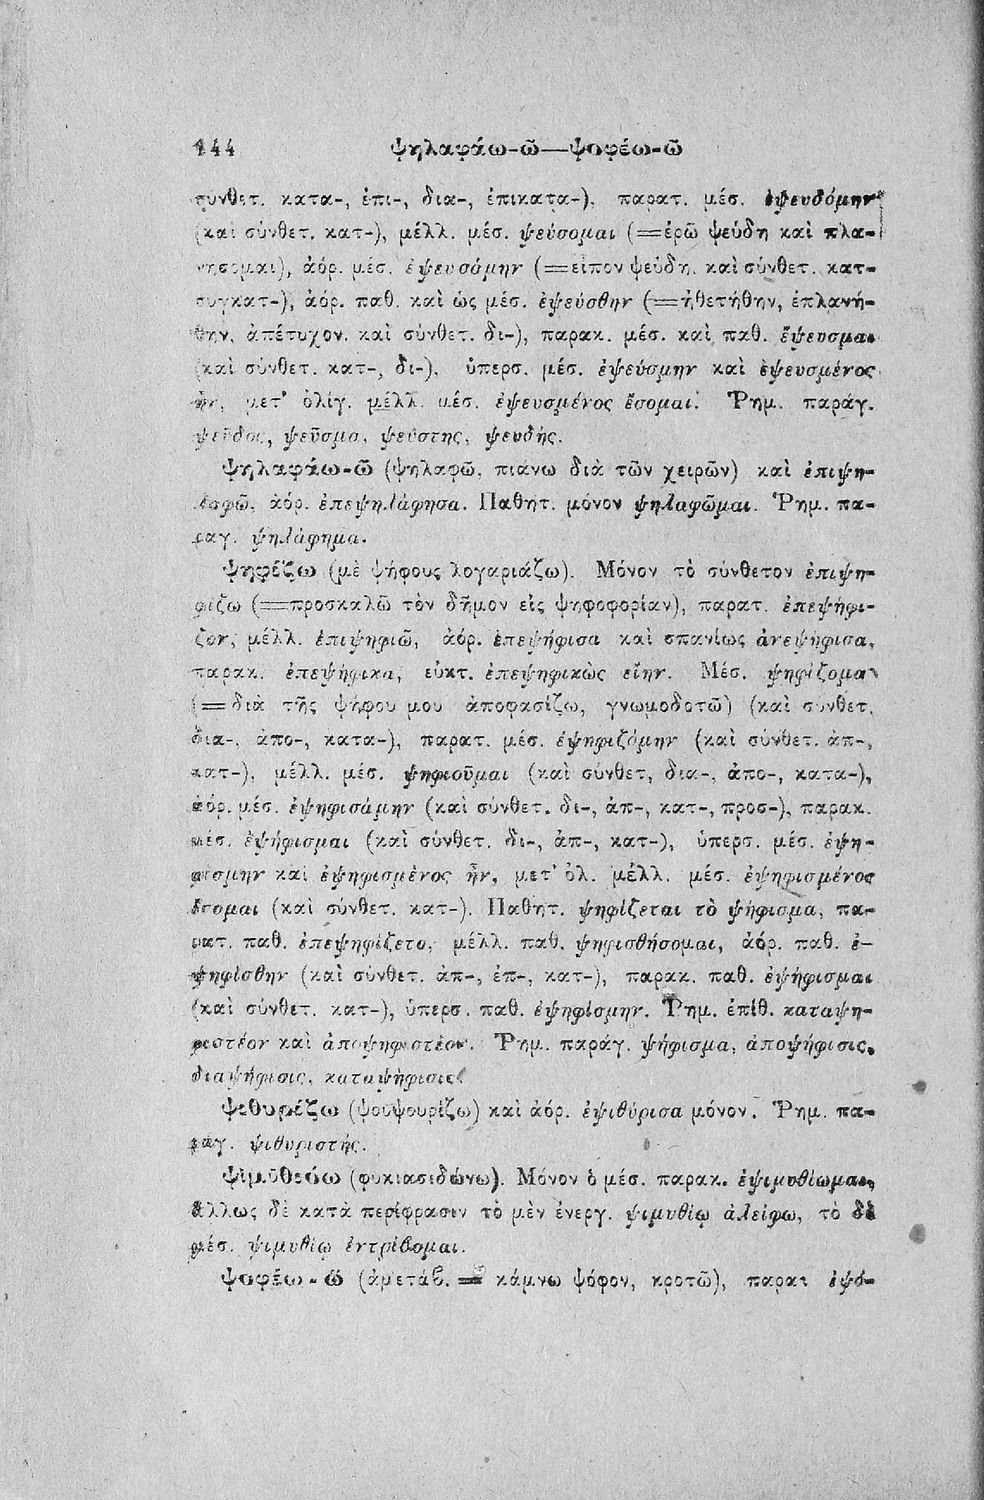 144 ψηλαφάω-ῶ—ψοφέω-ῶ
συνθετ. κατα-, ἐπι-, δια-, ἐπικατα-), παρατ. μέσ. ἐψευδόμην
(καὶ σύνθετ. κατ-), μέλλ. μέσ. ψεύσομαι (=ἐρῶ ψεύδη καὶ πλα-
νήσομαι), ἀόρ. μέσ. ἐψευσάμην (=εἶπον ψεύδη, καὶ σύνθετ. κατ-
συγκατ-), ἀόρ. παθ. καὶ ὡς μέσ. ἐψεύσθην (=ἠθετήθην, ἐπλανή-
θην, ἀπέτυχον, καὶ σύνθετ. δι-), παρακ. μέσ. καὶ παθ. ἔψευσμαι
(καὶ σύνθετ. κατ-, δι-), ὑπερσ. μέσ. ἐψεύσμην καὶ ἐψευσμένος
ἦν, μετ' ὀλίγ. μέλλ. μέσ. ἐψευσμένος ἔσομαι. Ῥημ. παράγ.
ψεῦδος, ψεῦσμα, ψεύστης, ψευδής.
ψηλαφάω-ῶ (ψηλαφῶ, πιάνω διὰ τῶν χειρῶν) καὶ ἐπιψη-
λαφῶ, ἀόρ. ἐπεψηλάφησα. Παθητ. μόνον ψηλαφῶμαι. Ῥημ. πα-
ραγ. ψηλάφημα.
ψηφίζω (μὲ ψήφους λογαριάζω). Μόνον τὸ σύνθετον ἐπιψη-
φίζω (=προσκαλῶ τὸν δῆμον εἰς ψηφοφορίαν), παρατ. ἐπεψήφι-
ζον, μέλλ. ἐπιψηφιῶ, ἀόρ. ἐπεψήφισα καὶ σπανίως ἀνεψήφισα,
παρακ. ἐπεψήφικα, εὐκτ. ἐπεψηφικὼς εἴην. Μέσ. ψηφίζομαι
(=διὰ τῆς ψήφου μου ἀποφασίζω, γνωμοδοτῶ) (καὶ σύνθετ.
δια-, ἀπο-, κατα-), παρατ. μέσ. ἐψηφιζόμην (καὶ σύνθετ. ἀπ-,
κατ-), μέλλ. μέσ. ψηφιοῦμαι (καὶ σύνθετ, δια-, ἀπο-, κατα-),
ἀόρ. μέσ. ἐψηφισάμην (καὶ σύνθετ. δι-, ἀπ-, κατ-, προσ-), παρακ.
μέσ. ἐψήφισμαι (καὶ σύνθετ. δι-, ἀπ-, κατ-), ὑπερσ. μέσ. ἐψη-
φίσμην καὶ ἐψηφισμένος ἦν, μετ' ὀλ. μέλλ. μέσ. ἐψηφισμένος
ἔσομαι (καὶ σύνθετ. κατ-). Παθητ. ψηφίζεται τὸ ψήφισμα, πα-
ρατ. παθ. ἐπεψηφίζετο, μέλλ. παθ. ψηφισθήσομαι, ἀόρ. παθ. ἐ-
ψηφίσθην (καὶ σύνθετ. ἀπ-, ἐπ-, κατ-), παρακ. παθ. ἐψήφισμαι
(καὶ σύνθετ. κατ-), ὑπερσ. παθ. ἐψηφίσμην. Ῥημ. ἐπίθ. καταψη-
φιστέον καὶ ἀποψηφιστέον. Ῥημ. παράγ. ψήφισμα, ἀποψήφισις,
διαψήφισις, καταψήφισις.
ψιθυρίζω (ψουψουρίζω) καὶ ἀόρ. ἐψιθύρισα μόνον. Ῥημ. πα-
ράγ. ψιθυριστής.
ψιμυθιόω (φυκιασιδώνω). Μόνον ὁ μέσ. παρακ. ἐψιμυθίωμαι,
ἄλλως δὲ κατὰ περίφρασιν τὸ μὲν ἐνεργ. ψιμυθίῳ ἀλείφω, τὸ δὲ
μέσ. ψιμυθίῳ ἐντρίβομαι.
ψοφέω-ῶ (ἀμετάβ. = κάμνω ψόφον, κροτῶ), παρατ ἐψό-